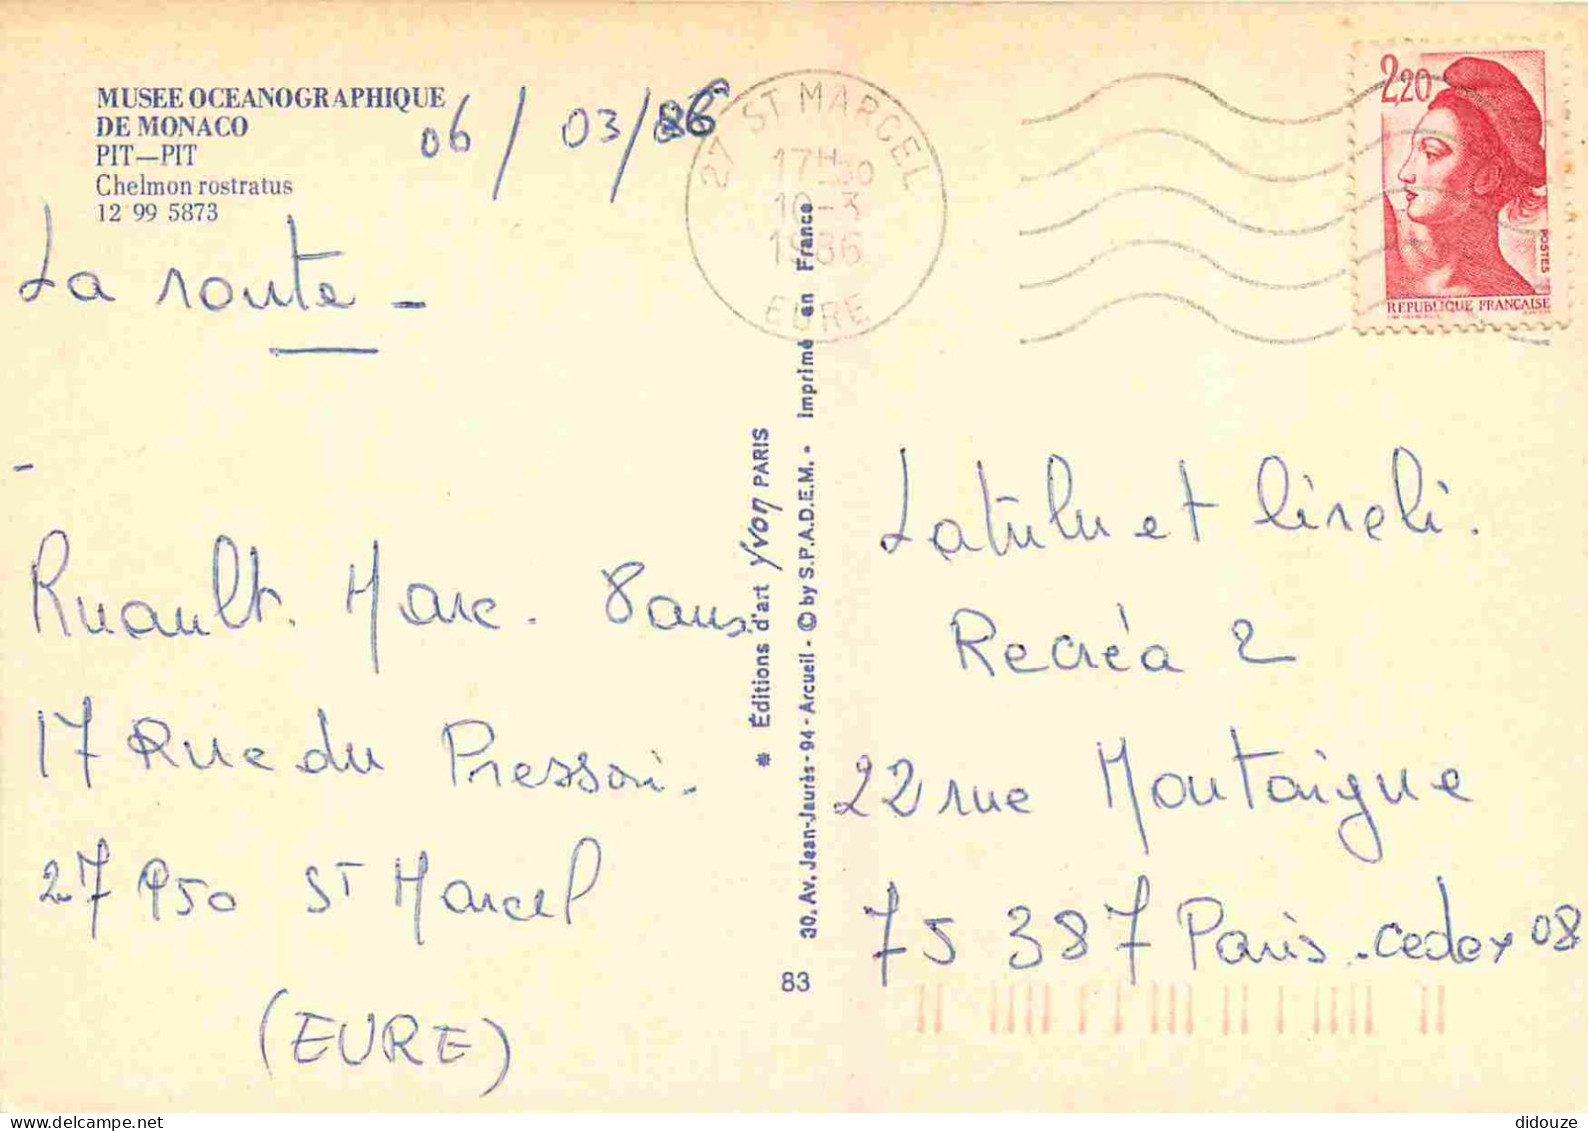 MUSEE OCEANOGRAPHIQUE
DE MONACO
PIT—PIT
Chelmon rostratus
12 99 5873
06/03/86
La route -
Ruault. Marc. 8 ans.
17 Rue du Pressoi.
27 950 ST Marcel
(EURE)
* Éditions d'art Yvon PARIS
30, Av. Jean-Jaurès - 94 - Arcueil - © by S.P.A.D.E.M. - Imprimé en France
83
27 ST MARCEL
17H30
10-3
1986
EURE
2,20
POSTES
REPUBLIQUE FRANÇAISE
Latulu et lireli.
Recréa 2
22 rue Montaigne
75 387 Paris.cedex 08
didouze